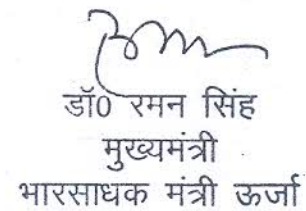 डॉ0 रमन सिंह
मुख्यमंत्री
भारसाधक मंत्री ऊर्जा